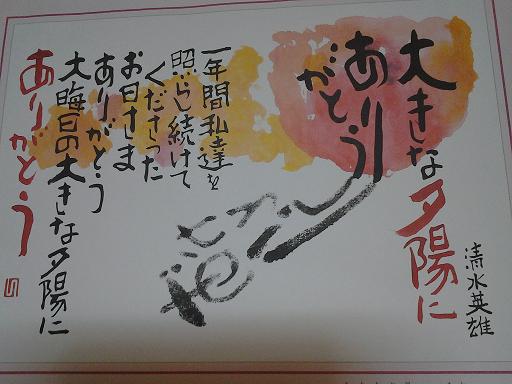 大きな夕陽に
ありがとう
清水英雄
一年間私達を
照らし続けて
くださった
お日さま
ありがとう
大晦日の大きな夕陽に
ありがとう